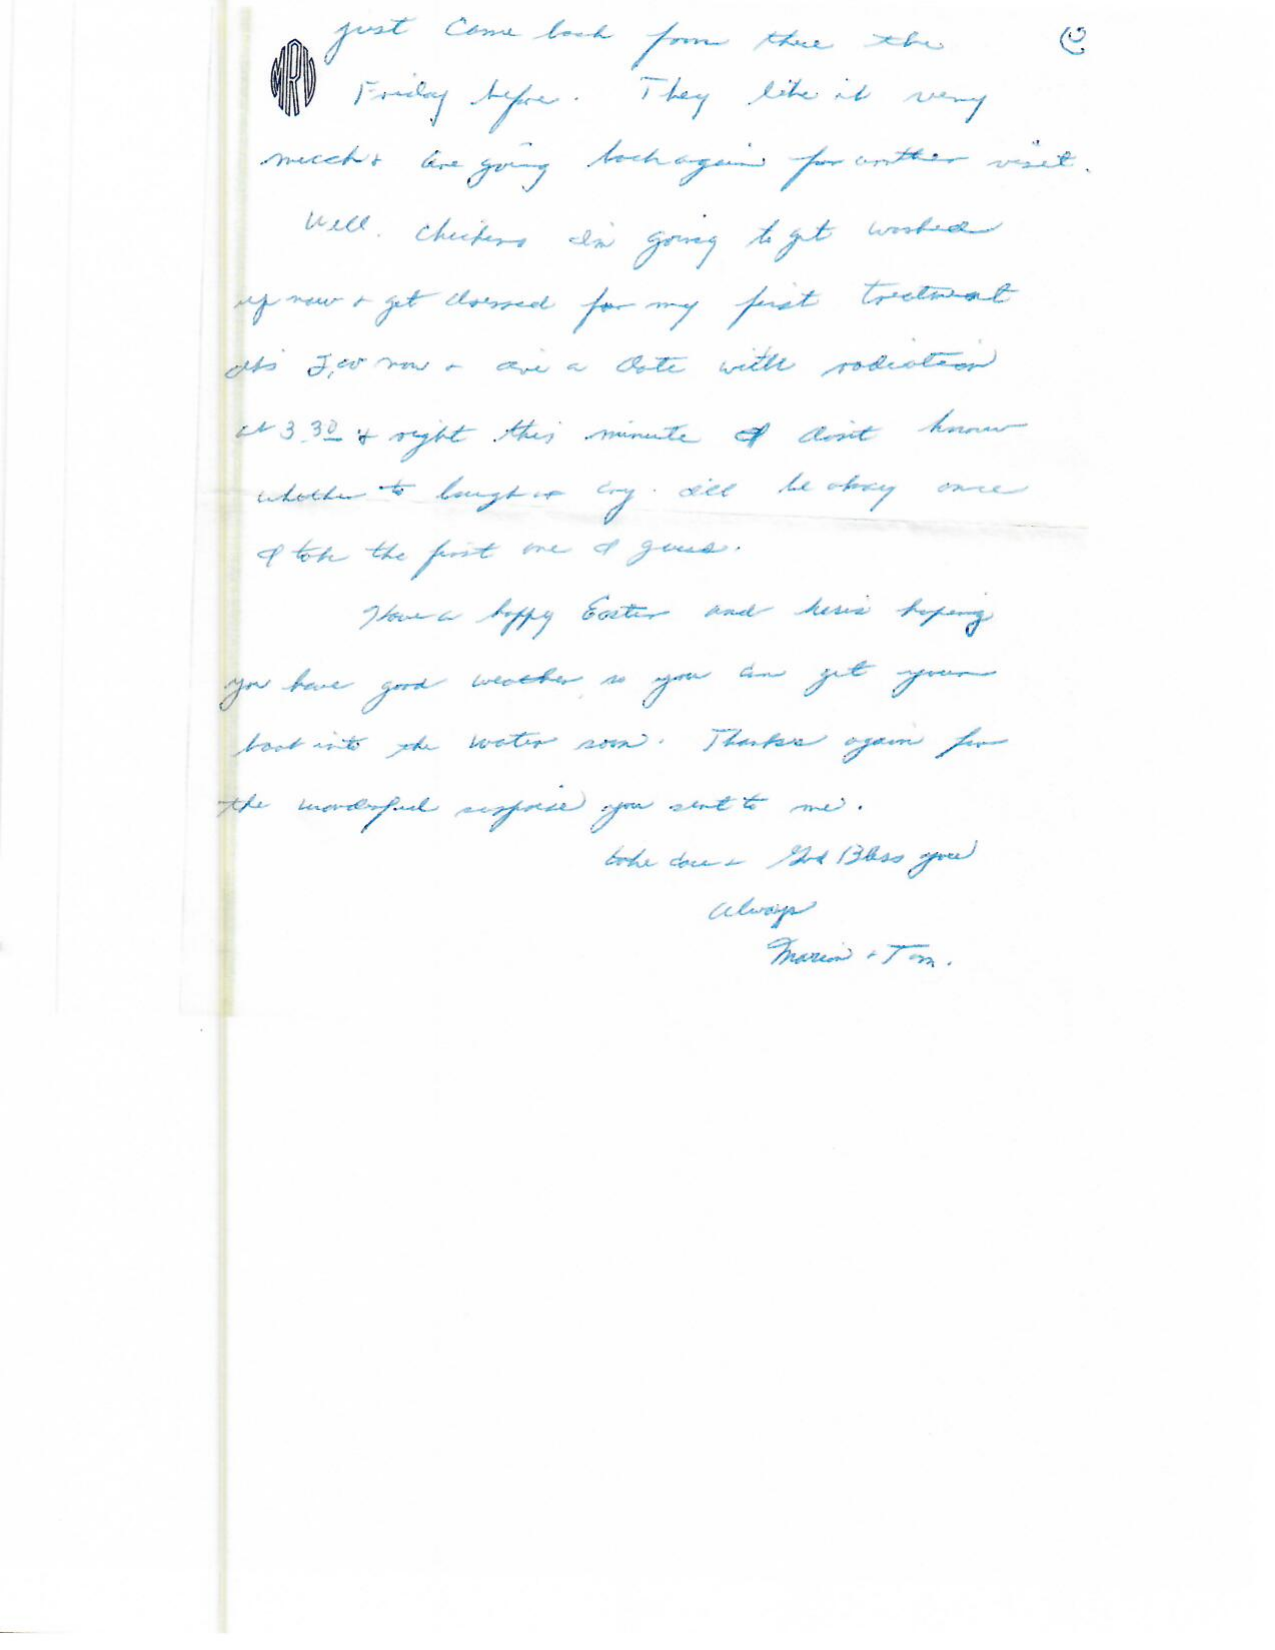 just came back from there the
MRV
Friday before. They like it very
much & are going back again for another visit.
Well. Chickens I'm going to get washed
up now & get dressed for my first treatment
its now & a date with radiation
at 3.30 & right this minute I don't know
whether to laugh or cry. I'll be okay once
I take the first one I guess.
Have a happy Easter and here's hoping
you have good weather so you can get your
boat into the water soon. Thanks again for
the wonderful surprise you sent to me.
Take care & God Bless you
Always
Marion & Tom.